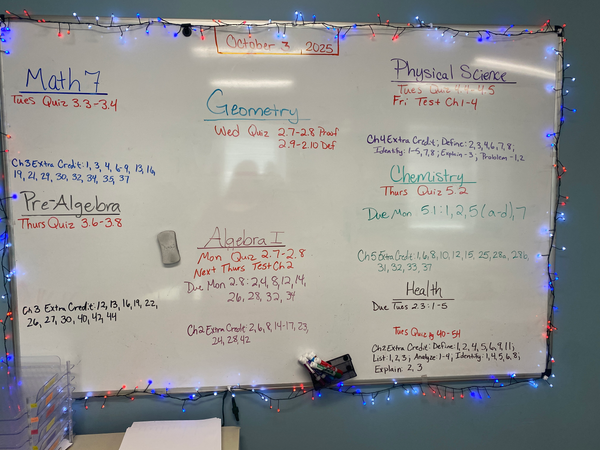 October 3, 2025
Math 7
Tues Quiz 3.3-3.4
Ch 3 Extra Credit: 1, 3, 4, 6-9, 13, 16,
19, 21, 29, 30, 32, 34, 35, 37
Pre-Algebra
Thurs Quiz 3.6-3.8
Ch 3 Extra Credit: 12, 13, 16, 19, 22,
26, 27, 30, 40, 42, 44
Geometry
Wed Quiz 2.7-2.8 Proof
2.9-2.10 Def
Algebra I
Mon Quiz 2.7-2.8
Next Thurs Test Ch 2
Due Mon 2.8: 2, 4, 8, 12, 14,
26, 28, 32, 34
Ch 2 Extra Credit: 2, 6, 8, 14-17, 23,
24, 28, 42
Physical Science
Tues Quiz
Fri Test Ch 1-4
Ch 4 Extra Credit; Define: 2, 3, 4, 6, 7, 8;
Identify: 1-5, 7, 8; Explain-3; Problem-1, 2
Chemistry
Thurs Quiz 5.2
Due Mon 5.1: 1, 2, 5 (a-d), 7
Ch 5 Extra Credit: 1, 6, 8, 10, 12, 15, 25, 28a, 28b,
31, 32, 33, 37
Health
Due Tues 2.3: 1-5
Tues Quiz pg 40-54
Ch 2 Extra Credit: Define: 1, 2, 4, 5, 6, 9, 11;
List: 1, 2, 3; Analyze 1-4; Identify: 1, 4, 5, 6, 8;
Explain: 2, 3